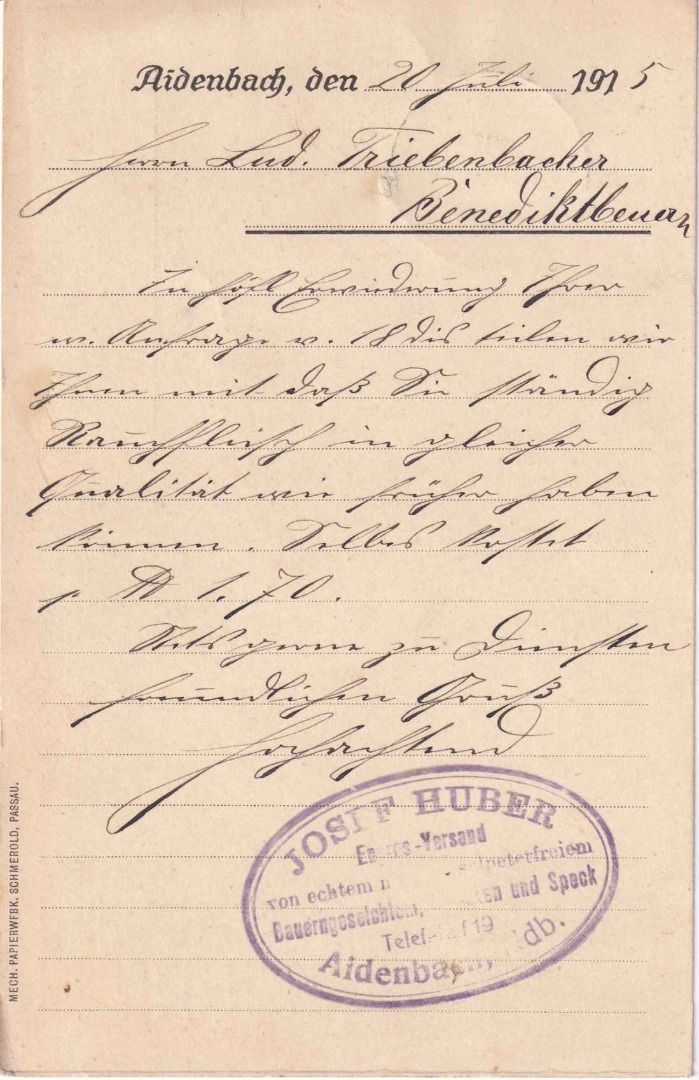 Aidenbach, den 20 Juli 1915
Herrn Lud. Triebenbacher
Benediktbeuern
In höfl Erwiederung Ihrer
w. Anfrage v. 18 dis teilen wir
Ihnen mit daß Sie ständig
Rauchfleisch in gleicher
Qualität wie früher haben
können. Selbes kostet
p ℔ 1.70.
Stets gerne zu Diensten
freundlichen Gruß
hochachtend
JOSEF HUBER
Engros-Versand
von echtem salpeterfreiem
Bauerngeselchtem, und Speck
Telefonruf 19
Aidenbach, Ndb.
MECH. PAPIERWFBK. SCHMEROLD, PASSAU.